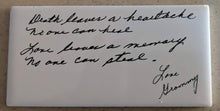 Death leaves a heartache
no one can heal
Love leaves a memory
no one can steal.
Love
Grammy